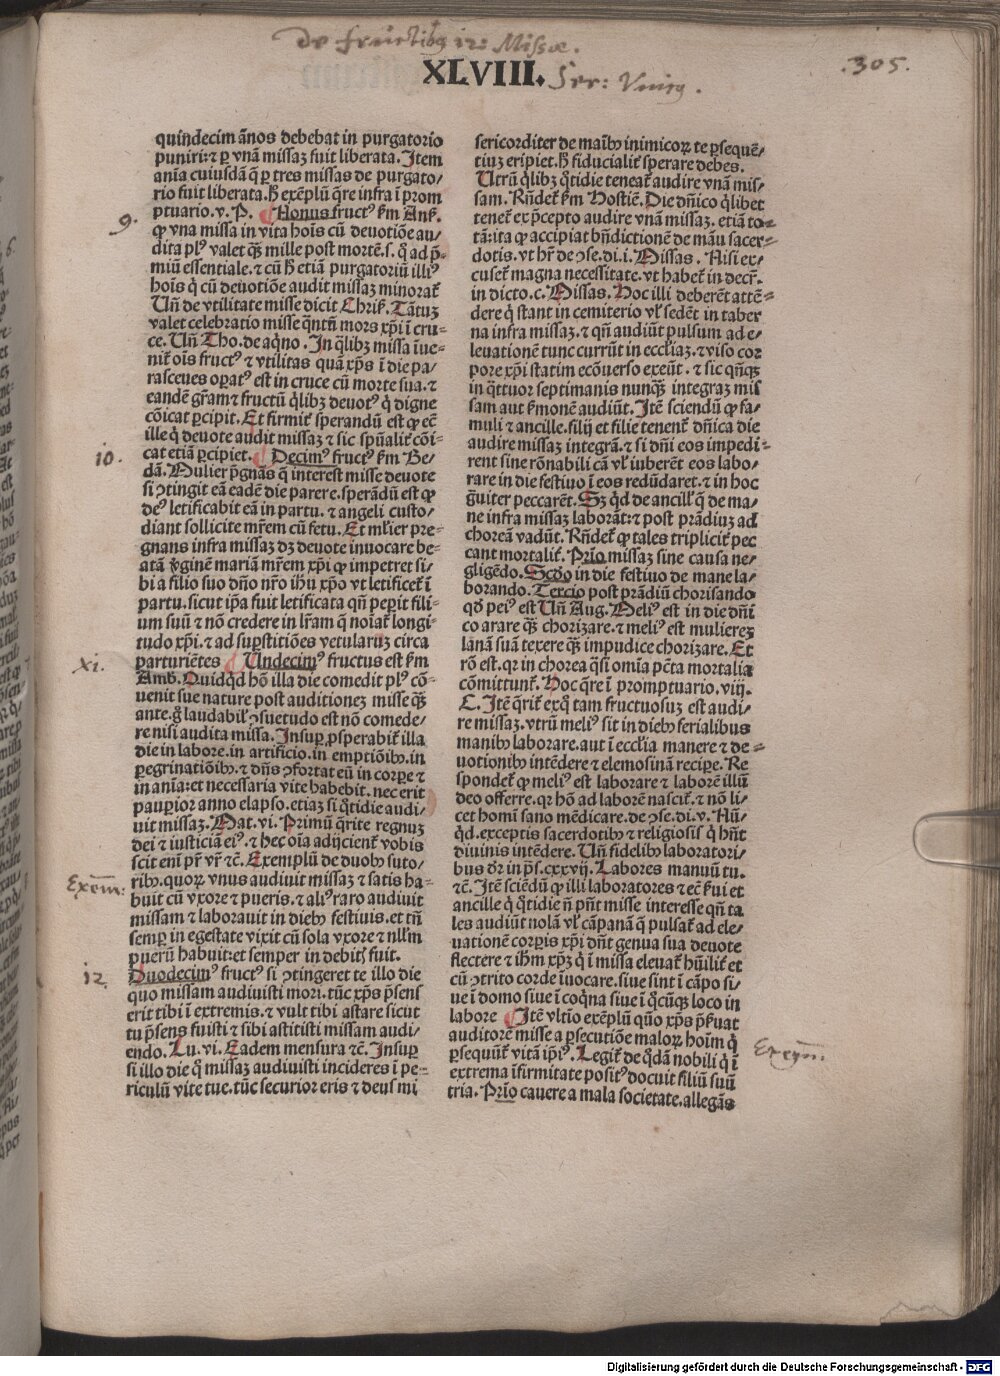 De fructibꝫ 12: Missæ.
XLVIII. Ser: Vnicꝫ.
.305.
quindecim ãnos debebat in purgatorio
puniri: ⁊ ꝑ vnã missaꝫ fuit liberata. Item
an̄ia cuiusdã q̄ ꝑ tres missas de purgato⸗
rio fuit liberata. h̄ exẽplũ q̄re infra ĩ prom
ptuario. v. P. Nonus fructꝰ ẜm Anẜ.
9.
ꝙ vna missa in vita hoĩs cũ deuotiõe au⸗
dita plꝰ valet q̄ꝫ mille post mortẽ. s. q̄ ad p̄⸗
miũ essentiale. ⁊ cũ h̄ etiã purgatoriũ illiꝰ
hoĩs q̄ cũ deuotiõe audit missaꝫ minorat᷑
Uñ de vtilitate misse dicit Chriẜ. Tãtuꝫ
valet celebratio misse q̄ntũ mors xp̄i ĩ cru⸗
ce. Uñ Tho. de aq̄no. In q̄libꝫ missa ĩue⸗
nit᷑ oĩs fructꝰ ⁊ vtilitas quã xp̄s ĩ die pa⸗
rasceues oꝑatꝰ est in cruce cũ morte sua. ⁊
eandẽ gr̃am ⁊ fructũ q̄libꝫ deuotꝰ q̄ digne
cõicat ꝑcipit. Et firmit᷑ sperandũ est ꝙ ec̃
ille q̄ deuote audit missaꝫ ⁊ sic sp̃ualit᷑ cõi⸗
cat etiã ꝑcipiet. Decimꝰ fructꝰ ẜm Be⸗
10.
dã. Mulier p̄gnãs q̄ interest misse deuote
si ↄtingit eã eadẽ die parere. sperãdũ est ꝙ
deꝰ letificabit eã in partu. ⁊ angeli custo⸗
diant sollicite mr̃em cũ fetu. Et ml̃ier pre⸗
gnans infra missaꝫ dꝫ deuote inuocare be⸗
atã v̓ginẽ mariã mr̃em xp̄i ꝙ impetret si⸗
bi a filio suo dño nr̃o ih̃u xp̃o vt letificet᷑ ĩ
partu. sicut ip̃a fuit letificata qñ peꝑit fili⸗
um suũ ⁊ nõ credere in lr̃am q̄ noĩat᷑ longi⸗
tudo xp̃i. ⁊ ad suꝑstitiões vetularuꝫ circa
parturiẽtes Undecimꝰ fructus est ẜm
xi.
Amb. Quidq̄d hõ illa die comedit plꝰ cõ⸗
uenit sue nature post auditioneꝫ misse q̄ꝫ
ante. g̊ laudabil᷑ ↄsuetudo est nõ comede⸗
re nisi audita missa. Insuꝑ ꝓsperabit᷑ illa
die in labore. in artificio. in emptiõibꝫ. in
ꝑegrinatiõibꝫ. ⁊ dñs ↄfortat eũ in corꝑe ⁊
in aĩa: et necessaria vite habebit. nec erit
pauꝑior anno elapso. etiaꝫ si q̄tidie audi⸗
uit missaꝫ. Mat. vi. Primũ q̄rite regnuꝫ
dei ⁊ iusticiã eiꝰ. ⁊ hec oĩa adijcient᷑ vobis
scit eni pr̃ vr̃ ⁊c̃. Exemplũ de duobꝫ suto⸗
ribꝫ. quoꝝ vnus audiuit missaꝫ ⁊ satis ha⸗
Exem̄:
buit cũ vxore ⁊ pueris. ⁊ aliꝰ raro audiuit
missam ⁊ laborauit in diebꝫ festiuis. et tñ
semꝑ in egestate vixit cũ sola vxore ⁊ nll̃m
puerũ habuit: et semper in debitꝭ fuit.
Duodecimꝰ fructꝰ si ↄtingeret te illo die
12.
quo missam audiuisti mori. tũc xp̃s p̄sens
erit tibi ĩ extremis. ⁊ vult tibi astare sicut
tu p̄sens fuisti ⁊ sibi astitisti missam audi⸗
endo. Lu. vi. Eadem mensura ⁊c̃. Insuꝑ
si illo die q̄ missaꝫ audiuisti incideres ĩ pe⸗
riculũ vite tue. tũc securior eris ⁊ deus mi
sericorditer de manibꝫ inimicoꝝ te ꝑsequẽ⸗
tiuꝫ eripiet. h̄ fiducialit᷑ sperare debes.
Utrũ q̄libꝫ q̄tidie teneat᷑ audire vnã mis⸗
sam. Rñdet᷑ ẜm Hostiẽ. Die dñico q̄libet
tenet᷑ ex p̄cepto audire vnã missaꝫ. etiã to⸗
tã: ita ꝙ accipiat bñdictionẽ de manu sacer⸗
dotis. vt hr̃ de ↄse. di. i. Missas. Nisi ex⸗
cuset᷑ magna necessitate. vt habet᷑ in decr̃.
in dicto. c. Missas. Hoc illi deberẽt attẽ⸗
dere q̄ stant in cemiterio vl᷑ sedẽt in taber
na infra missaꝫ. ⁊ qñ audiũt pulsum ad e⸗
leuationẽ tunc currũt in eccl̃iaꝫ. ⁊ viso cor
pore xp̃i statim ecõuerso exeũt. ⁊ sic q̄nq̄ꝫ
in q̄ttuor septimanis nunq̄ꝫ integraꝫ mis
sam aut ẜmonẽ audiũt. Itẽ sciendũ ꝙ fa⸗
muli ⁊ ancille. filij et filie tenent᷑ dñica die
audire missaꝫ integrã. ⁊ si dñi eos impedi⸗
rent sine rõnabili cã vl᷑ iuberẽt eos labo⸗
rare in die festiuo ĩ eos redũdaret. ⁊ in hoc
g̃uiter peccarẽt. Sꝫ q̄d de ancill᷑ q̄ de ma⸗
ne infra missaꝫ laborãt: ⁊ post prãdiuꝫ ad
choreã vadũt. Rñdet᷑ ꝙ tales triplicit᷑ pec
cant mortalit᷑. Prĩo missaꝫ sine causa ne⸗
gligẽdo. Scdõ in die festiuo de mane la⸗
borando. Tercio post prãdiũ chorisando
qd̃ peiꝰ est Uñ Aug. Meliꝰ est in die dñi
co arare q̄ꝫ chorizare. ⁊ meliꝰ est mulierez
lanã suã texere q̄ꝫ impudice chorizare. Et
rõ est. qꝛ in chorea q̄si omĩa pc̃ta mortalia
cõmittunt᷑. Hoc q̄re ĩ promptuario. viij.
C. Itẽ q̄rit᷑ exq̄ tam fructuosuꝫ est audi⸗
re missaꝫ. vtrũ meliꝰ sit in diebꝫ ferialibus
manibꝫ laborare. aut ĩ eccl̃ia manere ⁊ de⸗
uotionibꝫ intẽdere ⁊ elemosinã reciꝑe. Re
spondet᷑ ꝙ meliꝰ est laborare ⁊ laborẽ illũ
deo offerre. qꝛ hõ ad laborẽ nascit᷑. ⁊ nõ li⸗
cet homĩ sano mẽdicare. de ↄse. di. v. Nũ⸗
q̄d. exceptis sacerdotibꝫ ⁊ religiosis q̄ hñt
diuinis intẽdere. Uñ fidelibꝫ laboratori⸗
bus dr̃ in pš. cxxvij. Labores manuũ tu.
⁊c̃. Itẽ sciẽdũ ꝙ illi laboratores ⁊ ec̃ ẜui et
ancille q̄ q̄tidie ñ pñt misse interesse qñ ta
les audiũt nolã vl᷑ cãpanã q̄ pulsat᷑ ad ele⸗
uationẽ corꝑis xp̃i dñt genua sua deuote
flectere ⁊ ibĩm xp̃ꝫ q̄ ĩ missa eleuat᷑ hũilit᷑ et
cũ ↄtrito corde ĩuocare. siue sint ĩ cãpo si⸗
ue ĩ domo siue ĩ coq̄na siue ĩ q̄cũqꝫ loco in
labore Itẽ vltĩo exẽplũ quõ xp̃s p̄ẜuat
auditorẽ misse a ꝑsecutiõe maloꝝ hoĩm q̄
Exem̄:
ꝑsequũt᷑ vitã ip̃iꝰ. Legit᷑ de q̄dã nobili q̄ ĩ
extrema ĩfirmitate positꝰ docuit filiũ suũ
tria. Prĩo cauere a mala societate. allegãs
Digitalisierung gefördert durch die Deutsche Forschungsgemeinschaft - DFG